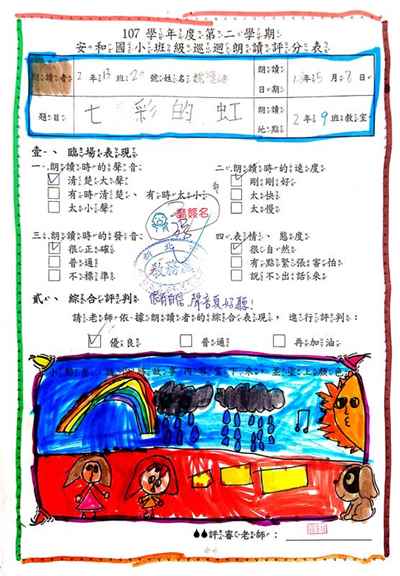 107學年度第二學期
安和國小班級巡迴朗讀評分表
朗讀者 2年13班20號姓名: 朗讀日期 5月8日
題目 七彩的虹 朗讀地點 2年9班教室
壹、臨場表現
一、朗讀時的聲音: 二、朗讀時的速度
清楚大聲 剛剛好
有時清楚、有時太小聲 太快
太小聲 太慢
三、朗讀時的發音 四、表情、態度
很正確 很自然
普通 有點緊張害怕
不標準 說不出話來
貳、綜合評判 很有自信,聲音更好聽!
請老師依據朗讀者的綜合表現,進行評判:
優良 普通 再加油
評審老師: